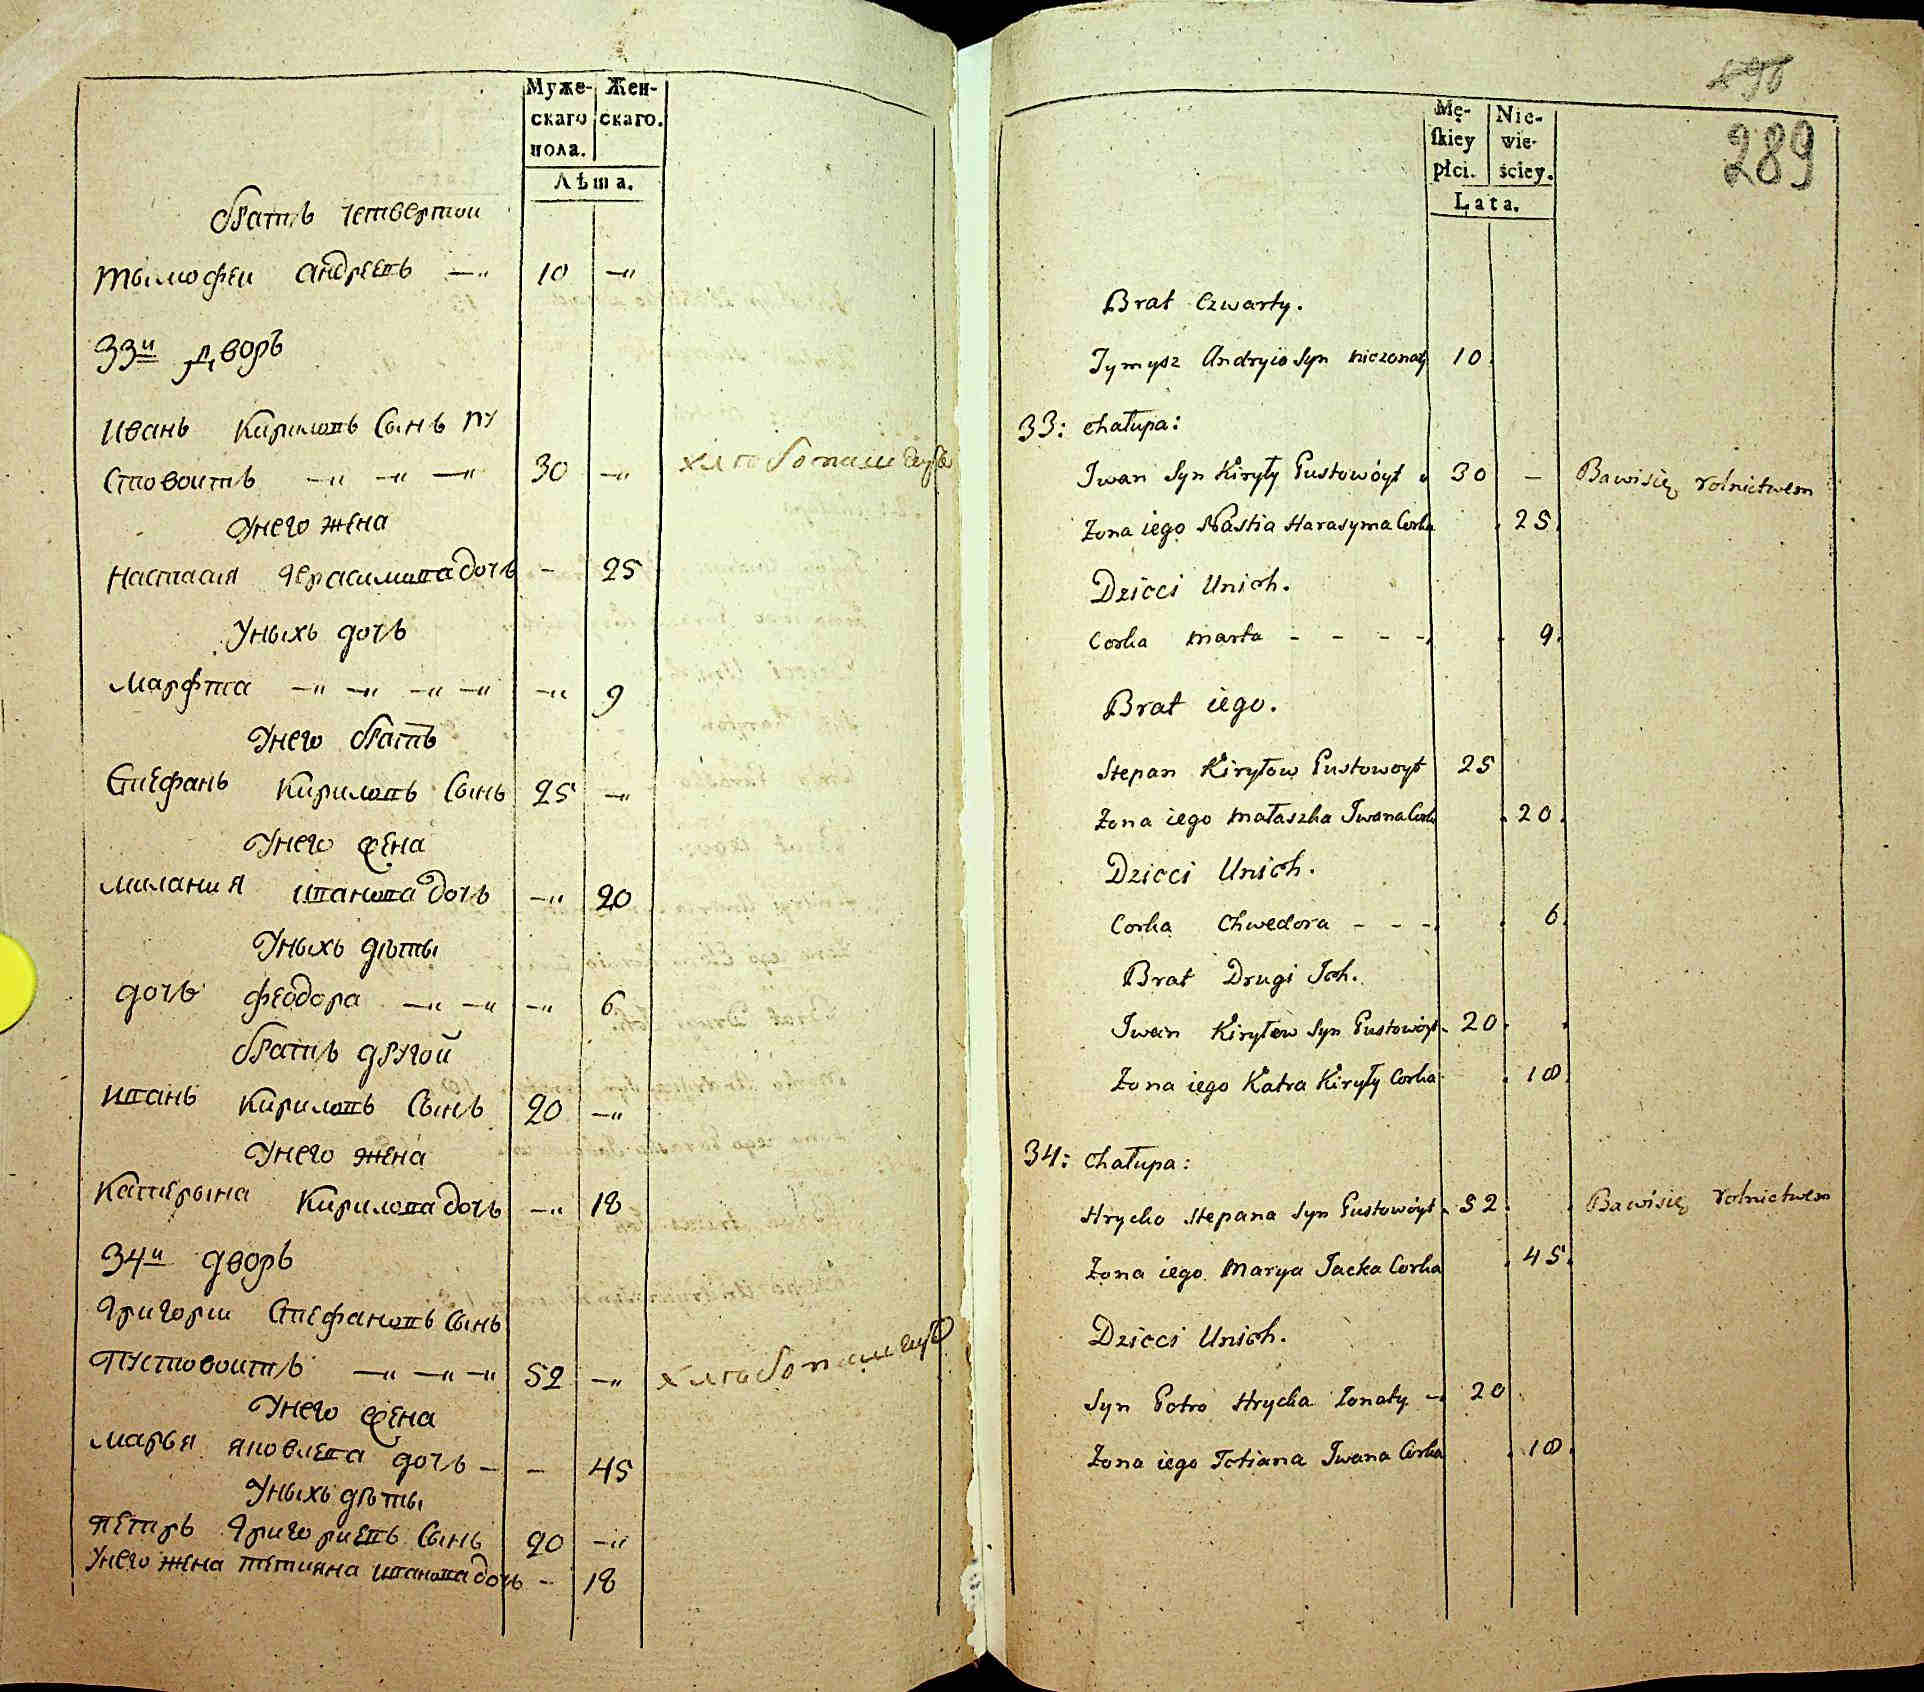 Муже- Жен-
скаго скаго.
пола.
Лѣта.
братъ четвертои
тымофеи андреевъ —„ 10 —„
33и дворъ
иванъ Кириловъ Сынъ пу
стовоитъ —„ —„ —„ 30 —„ хлѣбопашецъ
унего жена
настасия герасимова дочъ - 25
уныхъ дочъ
марфта —„ —„ —„ —„ —„ 9
унего братъ
Стефанъ Кириловъ Сынъ 25 —„
унего жена
милания иванова дочъ —„ 20
уныхъ дѣты
дочъ феодора —„ —„ —„ 6
братъ другой
иванъ Кириловъ Сынъ 20 —„
унего жена
Катерына Кирилова дочъ —„ 18
34и дворъ
григории Стефановъ Сынъ
пустовоитъ —„ —„ —„ 52 —„ хлѣбопашецъ
унего жена
марья яковлева дочъ — - 45
уныхъ дѣты
петръ григориевъ Сынъ 20 —„
унего жена тетияна иванова дочъ - 18
289
Mę- Nie-
skiey wie-
płci. ściey.
Lata.
Brat Czwarty.
Tymysz Andryia Syn niezonaty 10.
33: Chałupa:
Iwan Syn Kiryły Pustowóyt 30 - Bawi się rolnictwem
Żona iego Nastia Harasyma Corka 25.
Dzieci Unich.
Corka Marta - - - - 9.
Brat iego.
Stepan Kiryłow Pustowoyt 25
Żona iego Małaszka Iwana Corka 20.
Dzieci Unich.
Corka Chwedora - - - 6.
Brat Drugi Ich.
Iwan Kiryłow Syn Pustowóyt 20.
Żona iego Katra Kiryły Corka 18.
34: Chałupa:
Hrycko Stepana Syn Pustowóyt 52. Bawi się rolnictwem
Żona iego Marya Jacka Corka 45.
Dzieci Unich.
Syn Petro Hrycka Żonaty — 20
Żona iego Tetiana Iwana Corka 18.